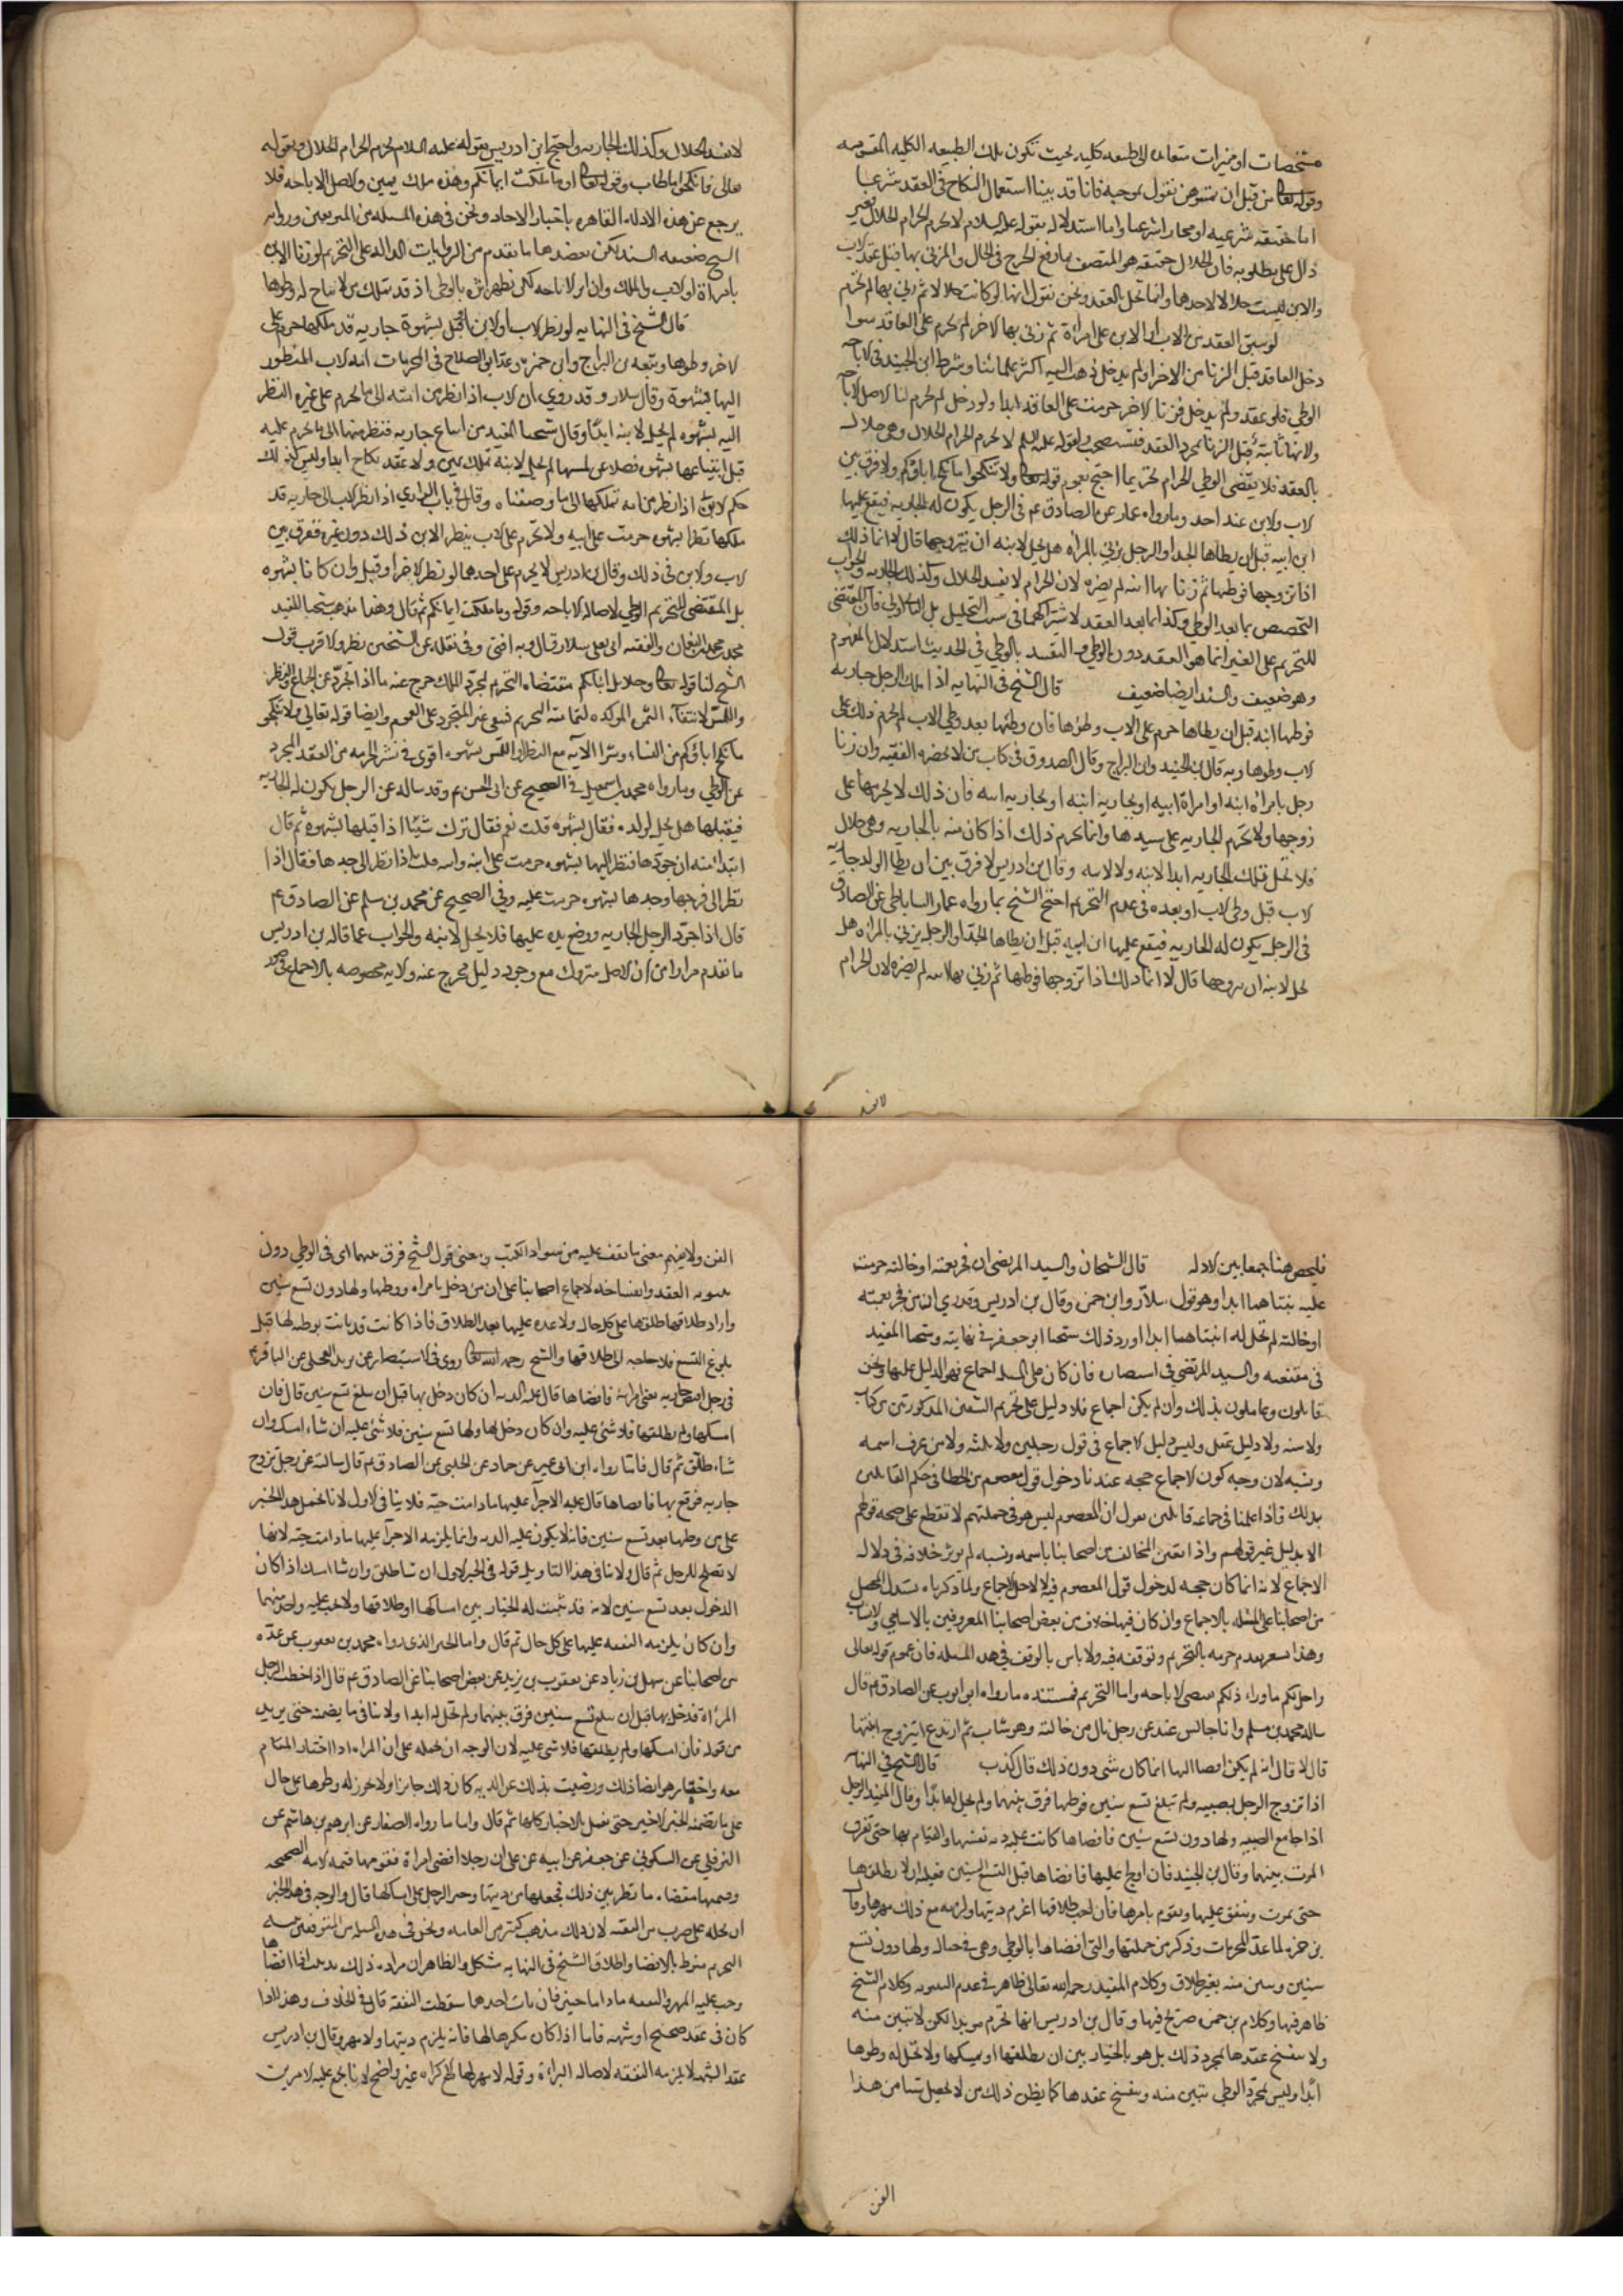 مشخصات او مميزات متعاند الى طبيعه كليه بحيث تكون تلك الطبيعه الكليه المقومه
وقوله تعالى من قبل ان تمسوهن نقول بموجبه فانا قد بينا استعمال النكاح فى العقد شرعا
اما حقيقه شرعيه او مجازا شرعيا واما استدلاله بقوله عليه السلام لا يحرم الحرام الحلال فغير
دال على مطلوبه فان الحلال حقيقه هو المتصف بارفع الحرج فى الحال والمزنى بها قبل عقد الاب
والابن ليست حلالا لاحدهما وانما تحل بالعقد ونحن نقول انها لو كانت حلالا ثم زنى بها لم تحرم
لو سبق العقد من الاب او الابن على امراة ثم زنى بها الاخر لم تحرم على العاقد سوا
دخل العاقد قبل الزنا من الاخر او لم يدخل ذهب اليه اكثر علمائنا وشرط ابن الجنيد فى الاباحه
الوطى فلو عقد ولم يدخل فزنا الاخر حرمت على العاقد ابدا ولو دخل لم تحرم لنا الاصل الاباحه
ولانها ثابته قبل الزنا بمجرد العقد فتستصحب ولقوله عليه السلم لا يحرم الحرام الحلال وهى حلال
بالعقد فلا يقتضى الوطى الحرام تحريما احتج بعموم قوله تعالى ولا تنكحوا ما نكح اباؤكم ولا فرق بين
الاب والابن عند احد وبما رواه عمار عن الصادق عم فى الرجل يكون له الجاريه فيقع عليها
ابن ابيه قبل ان يطاها الجد او الرجل يزنى بالمراه هل يحل لابنه ان يتزوجها قال لا انما ذلك
اذا تزوجها فوطئها ثم زنا بها ابنه لم يضره لان الحرام لا يفسد الحلال وكذلك الجاريه والجواب
التخصيص بما بعد الوطى وكذا ما بعد العقد لاشتراكهما فى سبب التحليل بل العقد اولى فان المقتضى
للتحريم على الغير انما هو العقد دون الوطى والتقييد بالوطى فى الحديث استدلال بالمفهوم
وهو ضعيف والسند ايضا ضعيف قال الشيخ فى النهايه اذا ملك الرجل جاريه
فوطئها ابنه قبل ان يطاها حرم على الاب وطؤها فان وطئها بعد وطى الاب لم يحرم ذلك على
الاب وطوها وبه قال ابن الجنيد وابن البراج وقال الصدوق فى كتاب من لا يحضره الفقيه وان زنا
رجل بامراة ابنه او امراة ابيه او بجارية ابنه او بجاريه ابيه فان ذلك لا يحرمها على
زوجها ولا تحرم الجاريه على سيدها وانما يحرم ذلك اذا كان منه بالجاريه وهى حلال
فلا تحل تلك الجاريه ابدا لابنه ولا لابيه وقال ابن ادريس لا فرق بين ان يطا الولد جاريه
الاب قبل وطى الاب او بعده فى عدم التحريم احتج الشيخ بما رواه عمار الساباطى عن الصادق
فى الرجل يكون له الجاريه فيقع عليها ابن ابنه قبل ان يطاها الجد او الرجل يزنى بالمراه هل
يحل لابنه ان يتزوجها قال لا انما ذلك اذا تزوجها فوطئها ثم زنى بها ابنه لم يضره لان الحرام
لا يفسد
لا يفسد الحلال وكذلك الجاريه واحتج ابن ادريس بقوله عليه السلام لا يحرم الحرام الحلال وبقوله
تعالى فانكحوا ما طاب وقوله تعالى او ما ملكت ايمانكم وهذه ملك يمين والاصل الاباحه فلا
يرجع عن هذه الادله القاهره باخبار الاحاد ونحن فى هذه المسله من المتوقفين وروايه
الشيخ ضعيفه السند لكن يعضدها ما تقدم من الروايات الداله على التحريم لو زنا الابن
بامراة او الاب والملك وان اثر الاباحه لكن تظهر اثره بالوطى اذ قد تملك من لا يباح له وطوها
قال الشيخ فى النهايه لو نظر الاب او الابن او قبل بشهوة جاريه قد ملكها حرم على
الاخر وطوها وتبعه ابن البراج وابن حمزه وعد ابو الصلاح فى المحرمات امة الاب المنظور
اليها بشهوة وقال سلار وقد روى ان الاب اذا نظر من امته الى ما يحرم على غيره النظر
اليه بشهوه لم تحل لابنه ابدا وقال شيخنا المفيد من ابتاع جاريه فنظر منها الى ما يحرم عليه
قبل ابتياعها بشهوه فضلا عن لمسها لم تحل لابنه بملك يمين ولا عقد نكاح ابدا وليس كذلك
حكم الابن اذا نظر من امه تملكها الى ما وصفناه وقال فى باب السرارى اذا نظر الاب الى جاريه قد
ملكها نظرا بشهوه حرمت على ابنه ولا تحرم على الاب بنظر الابن ذلك دون غيره ففرق بين
الاب والابن فى ذلك وقال ابن ادريس لا يحرم على احدهما لو نظر الاخر او قبل وان كانا بشهوه
بل المقتضى للتحريم الوطى لاصاله الاباحه وقوله وما ملكت ايمانكم ثم قال وهذا مذهب شيخنا المفيد
محمد بن محمد بن النعمان والفقيه ابى يعلى سلار قال وبه افتى وفى نقله عن الشيخين نظر والاقرب قول
الشيخ لنا قوله تعالى وحلائل ابنائكم مقتضاه التحريم لمجرد الملك خرج عنه ما اذا تجرد عن الجماع والنظر
واللمس لانتفاء الثمره الموكده لتماميته التحريم فبقى غير المتجرد على العموم وايضا قوله تعالى ولا تنكحوا
ما نكح اباؤكم من النساء وسرا الايه مع النظر او اللمس بشهوه اقوى فى نشر الحرمه من العقد المجرد
عن الوطى وبما رواه محمد بن اسمعيل فى الصحيح عن ابى الحسن عم وقد ساله عن الرجل يكون له الجاريه
فيقبلها هل تحل لولده فقال بشهوه قلت نعم فقال ما ترك شيئا اذا قبلها بشهوه ثم قال
ابتداء منه ان جردها فنظر اليها بشهوه حرمت على ابنه وابيه قلت اذا نظر الى جسدها فقال اذا
نظر الى فرجها وجسدها بشهوه حرمت عليه وفى الصحيح عن محمد بن مسلم عن الصادق عم
قال اذا جرد الرجل الجاريه ووضع يده عليها فلا يحل لابنه والجواب عما قاله ابن ادريس
ما تقدم مرارا من ان الاصل متروك مع وجود دليل مخرج عنه والايه مخصوصه بالاجماع
فليخص هنا جمعا بين الادله قال الشيخان والسيد المرتضى ان فجر بعمته او خالته حرمت
عليه بنتاهما ابدا وهو قول سلار وابن حمزه وقال ابن ادريس وقد روى ان من فجر بعمته
او خالته لم تحل له ابنتاهما ابدا اورد ذلك شيخنا ابو جعفر فى نهايته وشيخنا المفيد
فى مقنعته والسيد المرتضى فى انتصاره فان كان على المسله اجماع فهو الدليل عليها ونحن
قائلون وعاملون بذلك وان لم يكن اجماع فلا دليل على تحريم البنتين المذكورتين من كتاب
ولا سنه ولا دليل عقل وليس دليل الاجماع فى قول رجلين ولا ثلثه ولا من عرف اسمه
ونسبه لان وجه كون الاجماع حجه عندنا دخول قول معصوم من الخطا فى حكم القائلين
بذلك فاذا علمنا فى جماعه قائلين بقول ان المعصوم ليس هو فى جملتهم لا نقطع على صحه قولهم
الا بدليل غير قولهم واذا تعين المخالف من اصحابنا باسمه ونسبه لم يوثر خلافه فى دلاله
الاجماع لانه انما كان حجه لدخول قول المعصوم فيه لا لاجل الاجماع ولما ذكرناه يستدل المحصل
من اصحابنا على المسله بالاجماع وان كان فيها خلاف من بعض اصحابنا المعروفين بالاسامى والانساب
وهذا يشعر بعدم جزمه بالتحريم وتوقفه فيه ولا باس بالوقف فى هذه المسله فان عموم قوله تعالى
واحل لكم ما وراء ذلكم يقتضى الاباحه واما التحريم فمستنده ما رواه ابو ايوب عن الصادق عم قال
ساله محمد بن مسلم وانا جالس عنده عن رجل نال من خالته وهو شاب ثم ارتدع ايتزوج ابنتها
قال لا قال انه لم يكن افضا اليها انما كان شى دون ذلك قال كذب قال الشيخ فى النهايه
اذا تزوج الرجل بصبيه ولم تبلغ تسع سنين فوطئها فرق بينهما ولم تحل له ابدا وقال المفيد الرجل
اذا جامع الصبيه ولها دون تسع سنين فافضاها كانت عليه ديه نفسها والقيام بها حتى تفرق
الموت بينهما وقال ابن الجنيد فان اولج عليها فافضاها قبل التسع السنين فعليه ان لا يطلقها
حتى تموت وينفق عليها ويقوم بامرها فان احب طلاقها اغرم ديتها ولزمه مع ذلك مهرها وقال
بن حمزه لما عد المحرمات وذكر من جملتها والتى افضاها بالوطى وهى فى حباله ولها دون تسع
سنين وتبين منه بغير طلاق وكلام المفيد رحمه الله تعالى ظاهر فى عدم البينونه وكلام الشيخ
ظاهر فيها وكلام بن حمزه صريح فيها وقال بن ادريس انها تحرم موبدا لكن لا تبين منه
ولا ينفسخ عقدها لمجرد ذلك بل هو بالخيار بين ان يطلقها او يمسكها ولا تحل له وطوها
ابدا وليس بمجرد الوطى تبين منه وينفسخ عقدها كما يظن ذلك من لا يحصل شيئا من هذا
الفن
الفن ولا يفهم معنى ما يقف عليه من سواد الكتب ومعنى قول الشيخ فرق بينهما اى فى الوطى دون
بينونه العقد وانفساخه لاجماع اصحابنا على ان من دخل بامراه ووطئها ولها دون تسع سنين
واراد طلاقها طلقها على كل حال ولا عده عليها بعد الطلاق فاذا كانت قد بانت بوطئه لها قبل
بلوغ التسع فلا حاجه الى طلاقها والشيخ رحمه الله تعالى روى فى الاستبصار عن بريد العجلى عن الباقر عم
فى رجل افتض جاريه يعنى امراته فافضاها قال عليه الديه ان كان دخل بها قبل ان تبلغ تسع سنين قال فان
امسكها ولم يطلقها فلا شى عليه وان كان دخل بها ولها تسع سنين فلا شى عليه ان شاء امسك وان
شاء طلق ثم قال فاما ما رواه ابن ابى عمير عن حماد عن الحلبى عن الصادق عم قال سالته عن رجل تزوج
جاريه فوقع بها فافضاها قال عليه الاجراء عليها ما دامت حيه فلا ينافى الاول لانا نحمل هذا الخبر
على من وطئها بعد تسع سنين فانه لا يكون عليه الديه وانما يلزمه الاجراء عليها ما دامت حيه لانها
لا تصلح للرجل ثم قال ولا ينافى هذا التاويل قوله فى الخبر الاول ان شا طلق وان شا امسك اذا كان
الدخول بعد تسع سنين لانه قد ثبت له الخيار بين امساكها او طلاقها ولا يجب عليه واحد منهما
وان كان يلزمه النفقه عليها على كل حال ثم قال واما الخبر الذى رواه محمد بن يعقوب عن عده
من اصحابنا عن سهل بن زياد عن يعقوب بن يزيد عن بعض اصحابنا عن الصادق عم قال اذا خطب الرجل
المراة فدخل بها قبل ان تبلغ تسع سنين فرق بينهما ولم تحل له ابدا ولا ينافى ما يضمنه خبر بريد
من قوله فان امسكها ولم يطلقها فلا شى عليه لان الوجه ان نحمله على ان المراه اذا اختارت المقام
معه واختار هو ايضا ذلك ورضيت بذلك عن الديه كان ذلك جائزا ولا يجوز له وطوها على حال
على ما تضمنه الخبر الاخير حتى نعمل بالاخبار كلها ثم قال واما ما رواه الصفار عن ابرهيم بن هاشم عن
النوفلى عن السكونى عن جعفر عن ابيه عن على ان رجلا افضى امراة فقومها قيمه الامه الصحيحه
وقيمتها مفضاه ثم نظر ما بين ذلك فجعلها من ديتها وجبر الرجل على امساكها قال والوجه فى هذا الخبر
ان نحمله على ضرب من التقيه لان ذلك مذهب كثير من العامه ونحن فى هذه المسله من المتوقفين
التحريم منوط بالافضا واطلاق الشيخ فى النهايه مشكل والظاهر ان مراده ذلك
وجب عليه المهر والنفقه ما داما حيين فان مات احدهما سقطت النفقه قال فى الخلاف وهذا اذا
كان فى عقد صحيح او شبهه فاما اذا كان مكرها لها فانه يلزم ديتها ولا مهر وقال بن ادريس
عقد الشبهه لا يلزمه النفقه لاصاله البراءة وقوله لا مهر لها مع الاكراه غير واضح لانا نجمع عليه الامرين